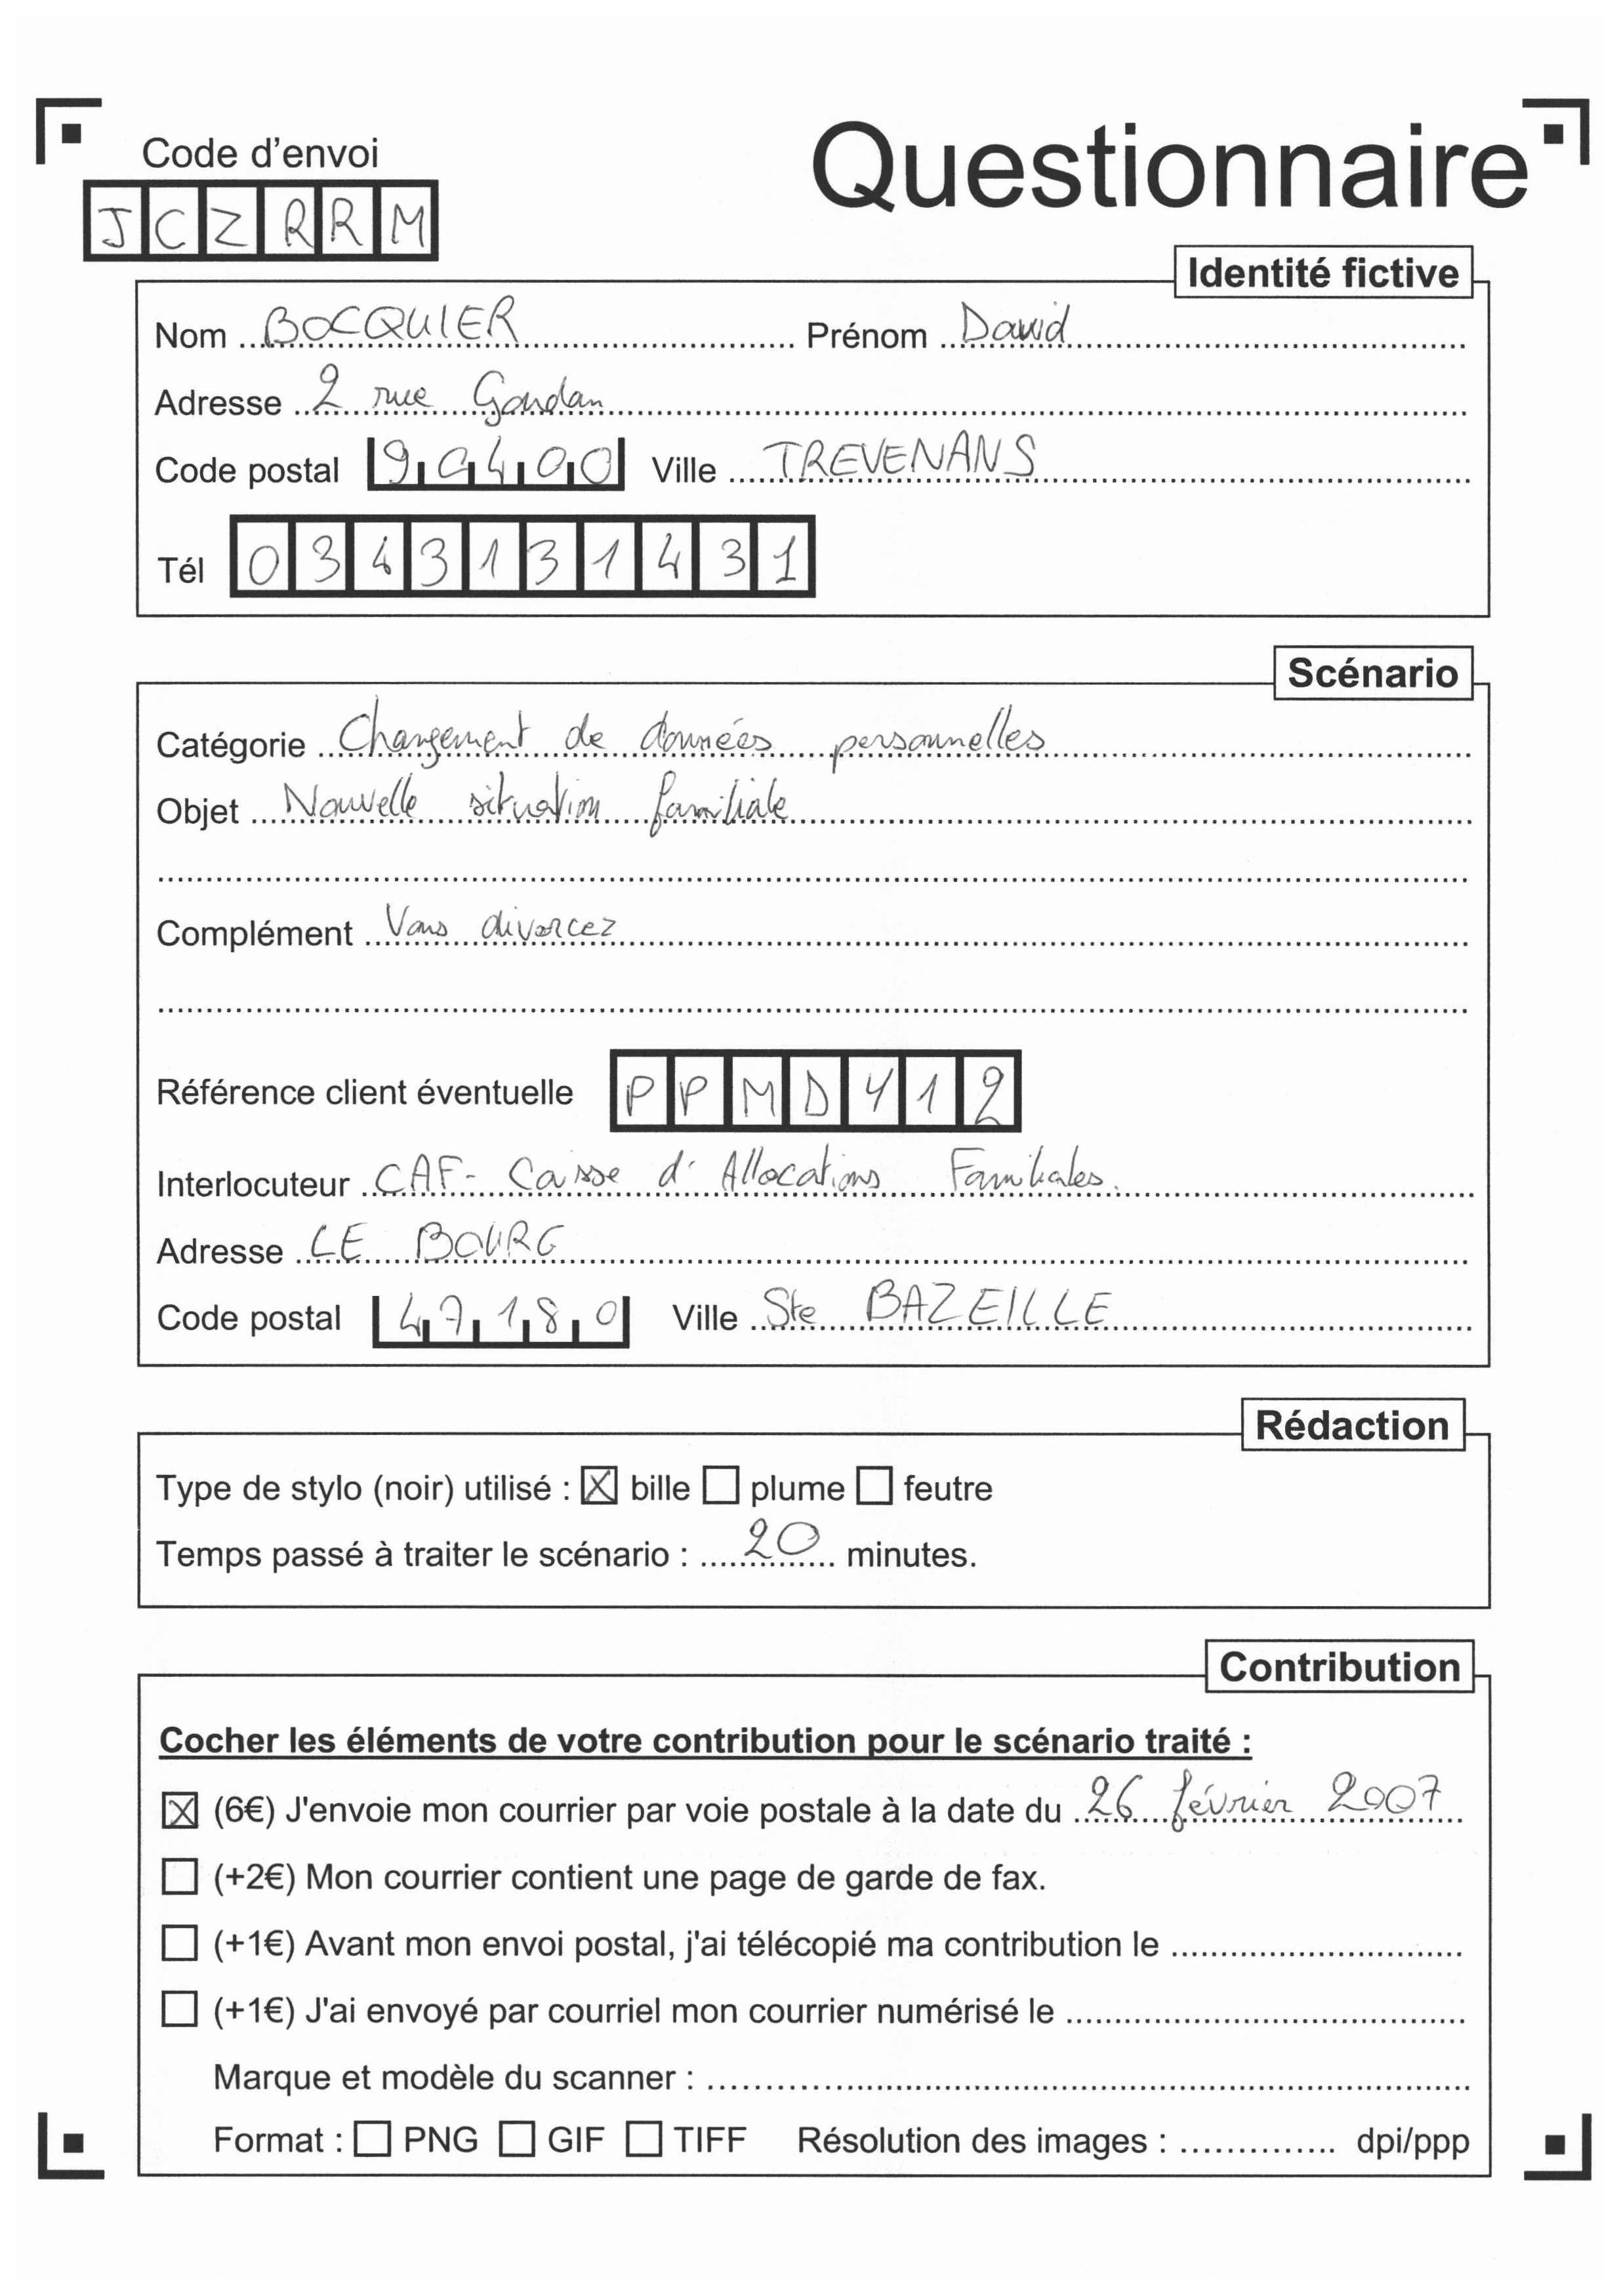 Code d'envoi
Questionnaire
JCZRRM
Identité fictive
Nom BOCQUIER Prénom David
Adresse 2 rue
Code postal 90400 Ville TREVENANS
Tél 0343131431
Scénario
Catégorie Changement de données personnelles
Objet Nouvelle situation familiale
Complément Vous divorcez
Référence client éventuelle PPMDY12
Interlocuteur CAF- Caisse d'Allocations Familiales.
Adresse LE BOURG
Code postal 47180 Ville Ste BAZEILLE
Rédaction
Type de stylo (noir) utilisé : ☒ bille ☐ plume ☐ feutre
Temps passé à traiter le scénario : 20 minutes.
Contribution
Cocher les éléments de votre contribution pour le scénario traité :
☒ (6€) J'envoie mon courrier par voie postale à la date du 26 février 2007
☐ (+2€) Mon courrier contient une page de garde de fax.
☐ (+1€) Avant mon envoi postal, j'ai télécopié ma contribution le
☐ (+1€) J'ai envoyé par courriel mon courrier numérisé le
Marque et modèle du scanner :
Format : ☐ PNG ☐ GIF ☐ TIFF Résolution des images : dpi/ppp